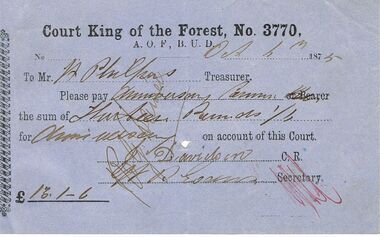 Court King of the Forest, No. 3770,
A. O. F., B. U. D.
No Oct 4th 1875
To Mr. Philpers Treasurer.
Please pay Anniversary Comm or Bearer
the sum of Thirteen Pounds 1/6
for Anniversary on account of this Court.
J Davidson C. R.
Secretary.
£ 13.1-6